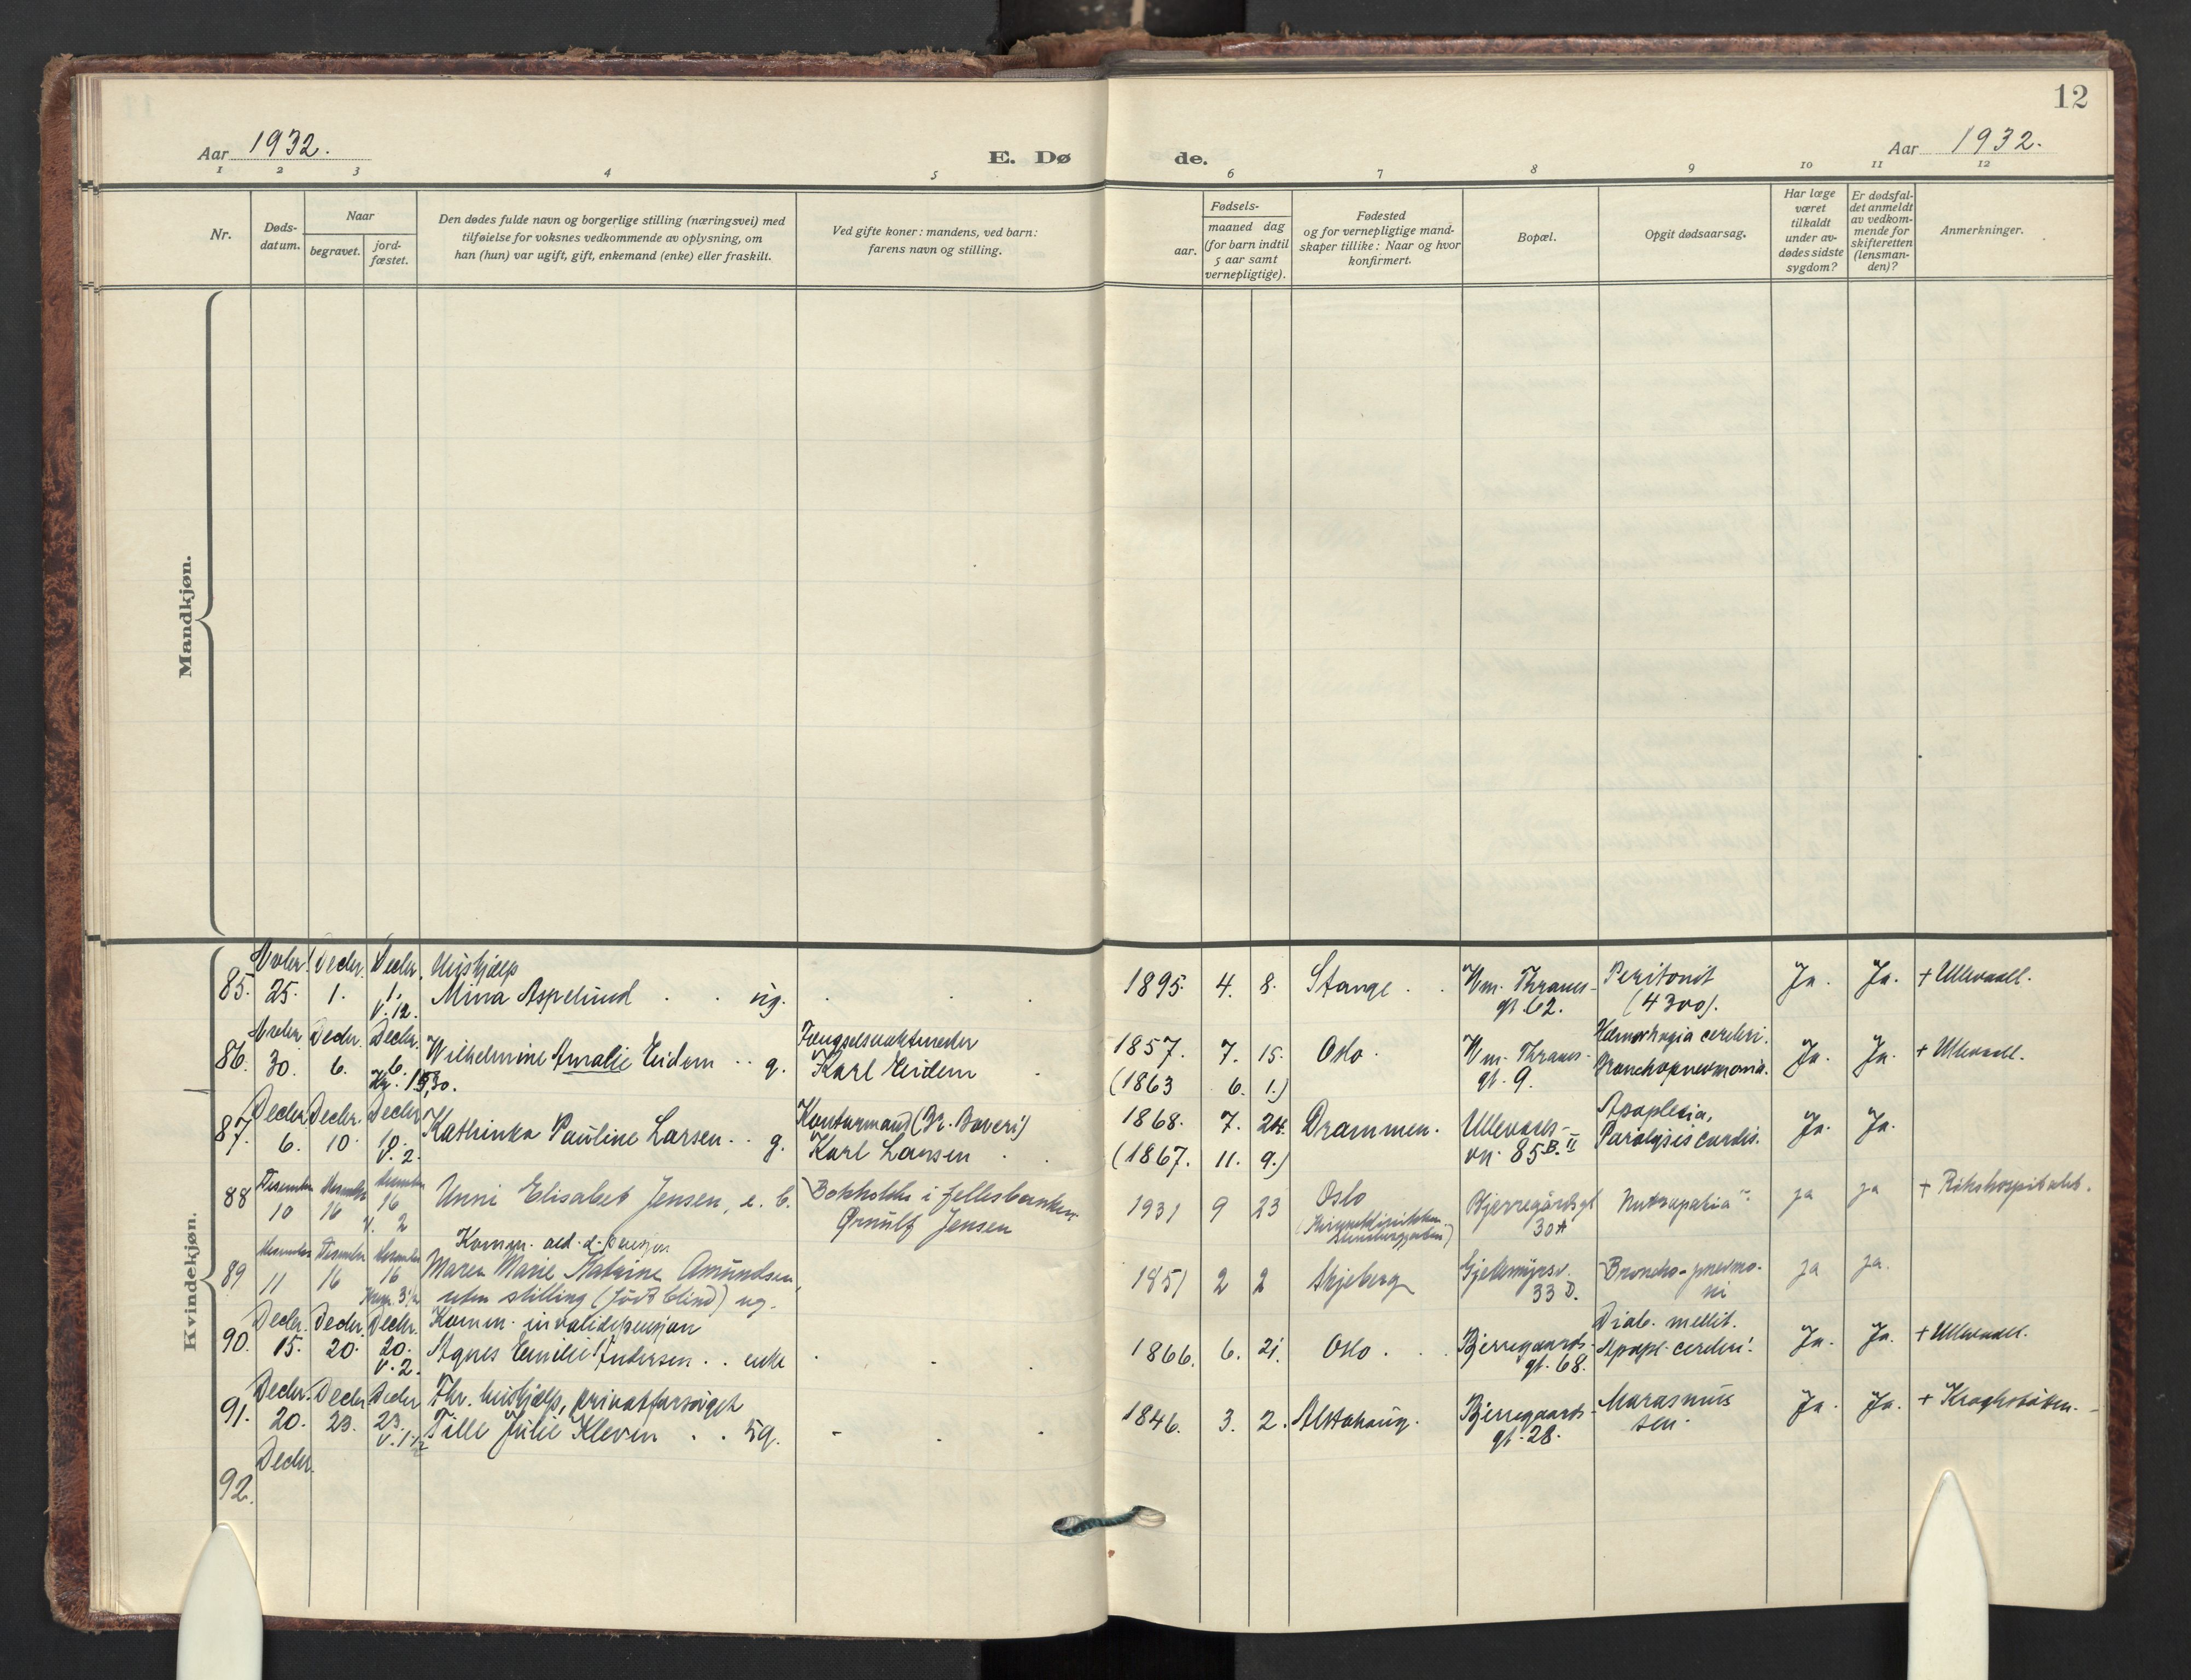 12
Aar 1932.
E. Dø
de.
Aar 1932.
1 2 3 4 5 6 7 8 9 10 11 12
Nr.
Døds-
datum.
Naar
begravet.
jord-
fæstet.
Den dødes fulde navn og borgerlige stilling (næringsvei) med
tilføielse for voksnes vedkommende av oplysning, om
han (hun) var ugift, gift, enkemand (enke) eller fraskilt.
Ved gifte koner: mandens, ved barn:
farens navn og stilling.
Fødsels-
aar.
maaned dag
(for barn indtil
5 aar samt
vernepligtige).
Fødested
og for vernepligtige mand-
skaper tillike: Naar og hvor
konfirmert.
Bopæl.
Opgit dødsaarsag.
Har læge
været
tilkaldt
under av-
dødes sidste
sygdom?
Er dødsfal-
det anmeldt
av vedkom-
mende for
skifteretten
(lensman-
den)?
Anmerkninger.
Mandkjøn.
Kvindekjøn.
Novbr. Decbr. Decbr. Hushjelp
85. 25. 1. 1. Mina Aspelund . . ug. 1895. 4. 8. Stange . . Vm. Thranes- Peritonit Ja. Ja. + Ullevaall.
V. 12. gt. 62. (4300).
Novbr. Decbr. Decbr. Hæmorhagia cerebri.
86. 30. 6. 6. Wilhelmine Amalie Eidem . . g. Karl Eidem 1857. 7. 15. Oslo. Vm. Thranes- Bronchopneumonia. Ja. Ja. + Ullevaall.
(1863 6. 1.) gt. 9.
Decbr. Decbr. Decbr. Kontormand (Br. Boveri) Apoplexia,
87. 6. 10. 10. Kathinka Pauline Larsen . . g. Karl Larsen 1868. 7. 24. Drammen. Ullevaals- Paralysis cordis. Ja. Ja.
V. 2. (1867. 11. 9.) vn. 85 B. II
Desember Desember Desember
88 10 16 16 Unni Elisabet Jensen, e. b. Bokholder i Fellesbanken 1931 9 23 Oslo Bjerregårdsgt ja ja + Rikshospitalet.
V. 2 Ørnulf Jensen 30A
Desember Desember Desember Komm. ald. d. pensjon
89 11 16 16 Maren Marie Katrine Amundsen, 1851 2 2 Skjeberg Gjetemyrsv. Broncho-pneumo- ja ja.
uten stilling (født blind) ug. 33 D. ni
Decbr. Decbr. Decbr. Komm. invalidepensjon Diab. mellit.
90. 15. 20. 20. Agnes Emilie Andersen . . enke 1866. 6. 21. Oslo . . . Bjerregaards- Apopl. cerebri. Ja. Ja. + Ullevaall.
V. 2. gt. 68.
Decbr. Decbr. Decbr. Fhv. hushjelp, privat forsørget
91. 20. 23. 23. Tille Julie Kleven . . ug. 1846. 3. 2. Alstahaug. Bjerregaards- Marasmus Ja. Ja.
V. 1 1/2 gt. 28. sen.
Decbr.
92.